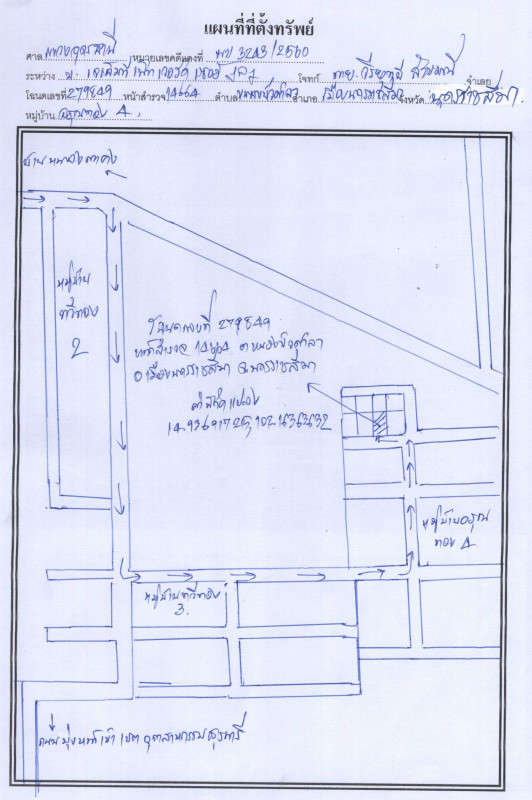 แผนที่ที่ตั้งทรัพย์
ศาล แขวงอุดรธานี หมายเลขคดีแดงที่ ผบ 3243/2560
ระหว่าง โจทก์ จำเลย
โฉนดเลขที่ 279849 หน้าสำรวจ 14664 ตำบล หนองบัวศาลา อำเภอ เมืองนครราชสีมา จังหวัด นครราชสีมา
หมู่บ้าน อรุณทอง 4
บ้านหนองตาคง
หมู่บ้าน
ทวีทอง
2
โฉนดเลขที่ 279849
หน้าสำรวจ 14664 ต หนองบัวศาลา
อ เมืองนครราชสีมา จ นครราชสีมา
ค่าพิกัดแปลง
หมู่บ้านอรุณ
ทอง 4
หมู่บ้านทวีทอง
3.
ถนนมุ่งหน้าเข้า เขต อุตสาหกรรมสุรนารี